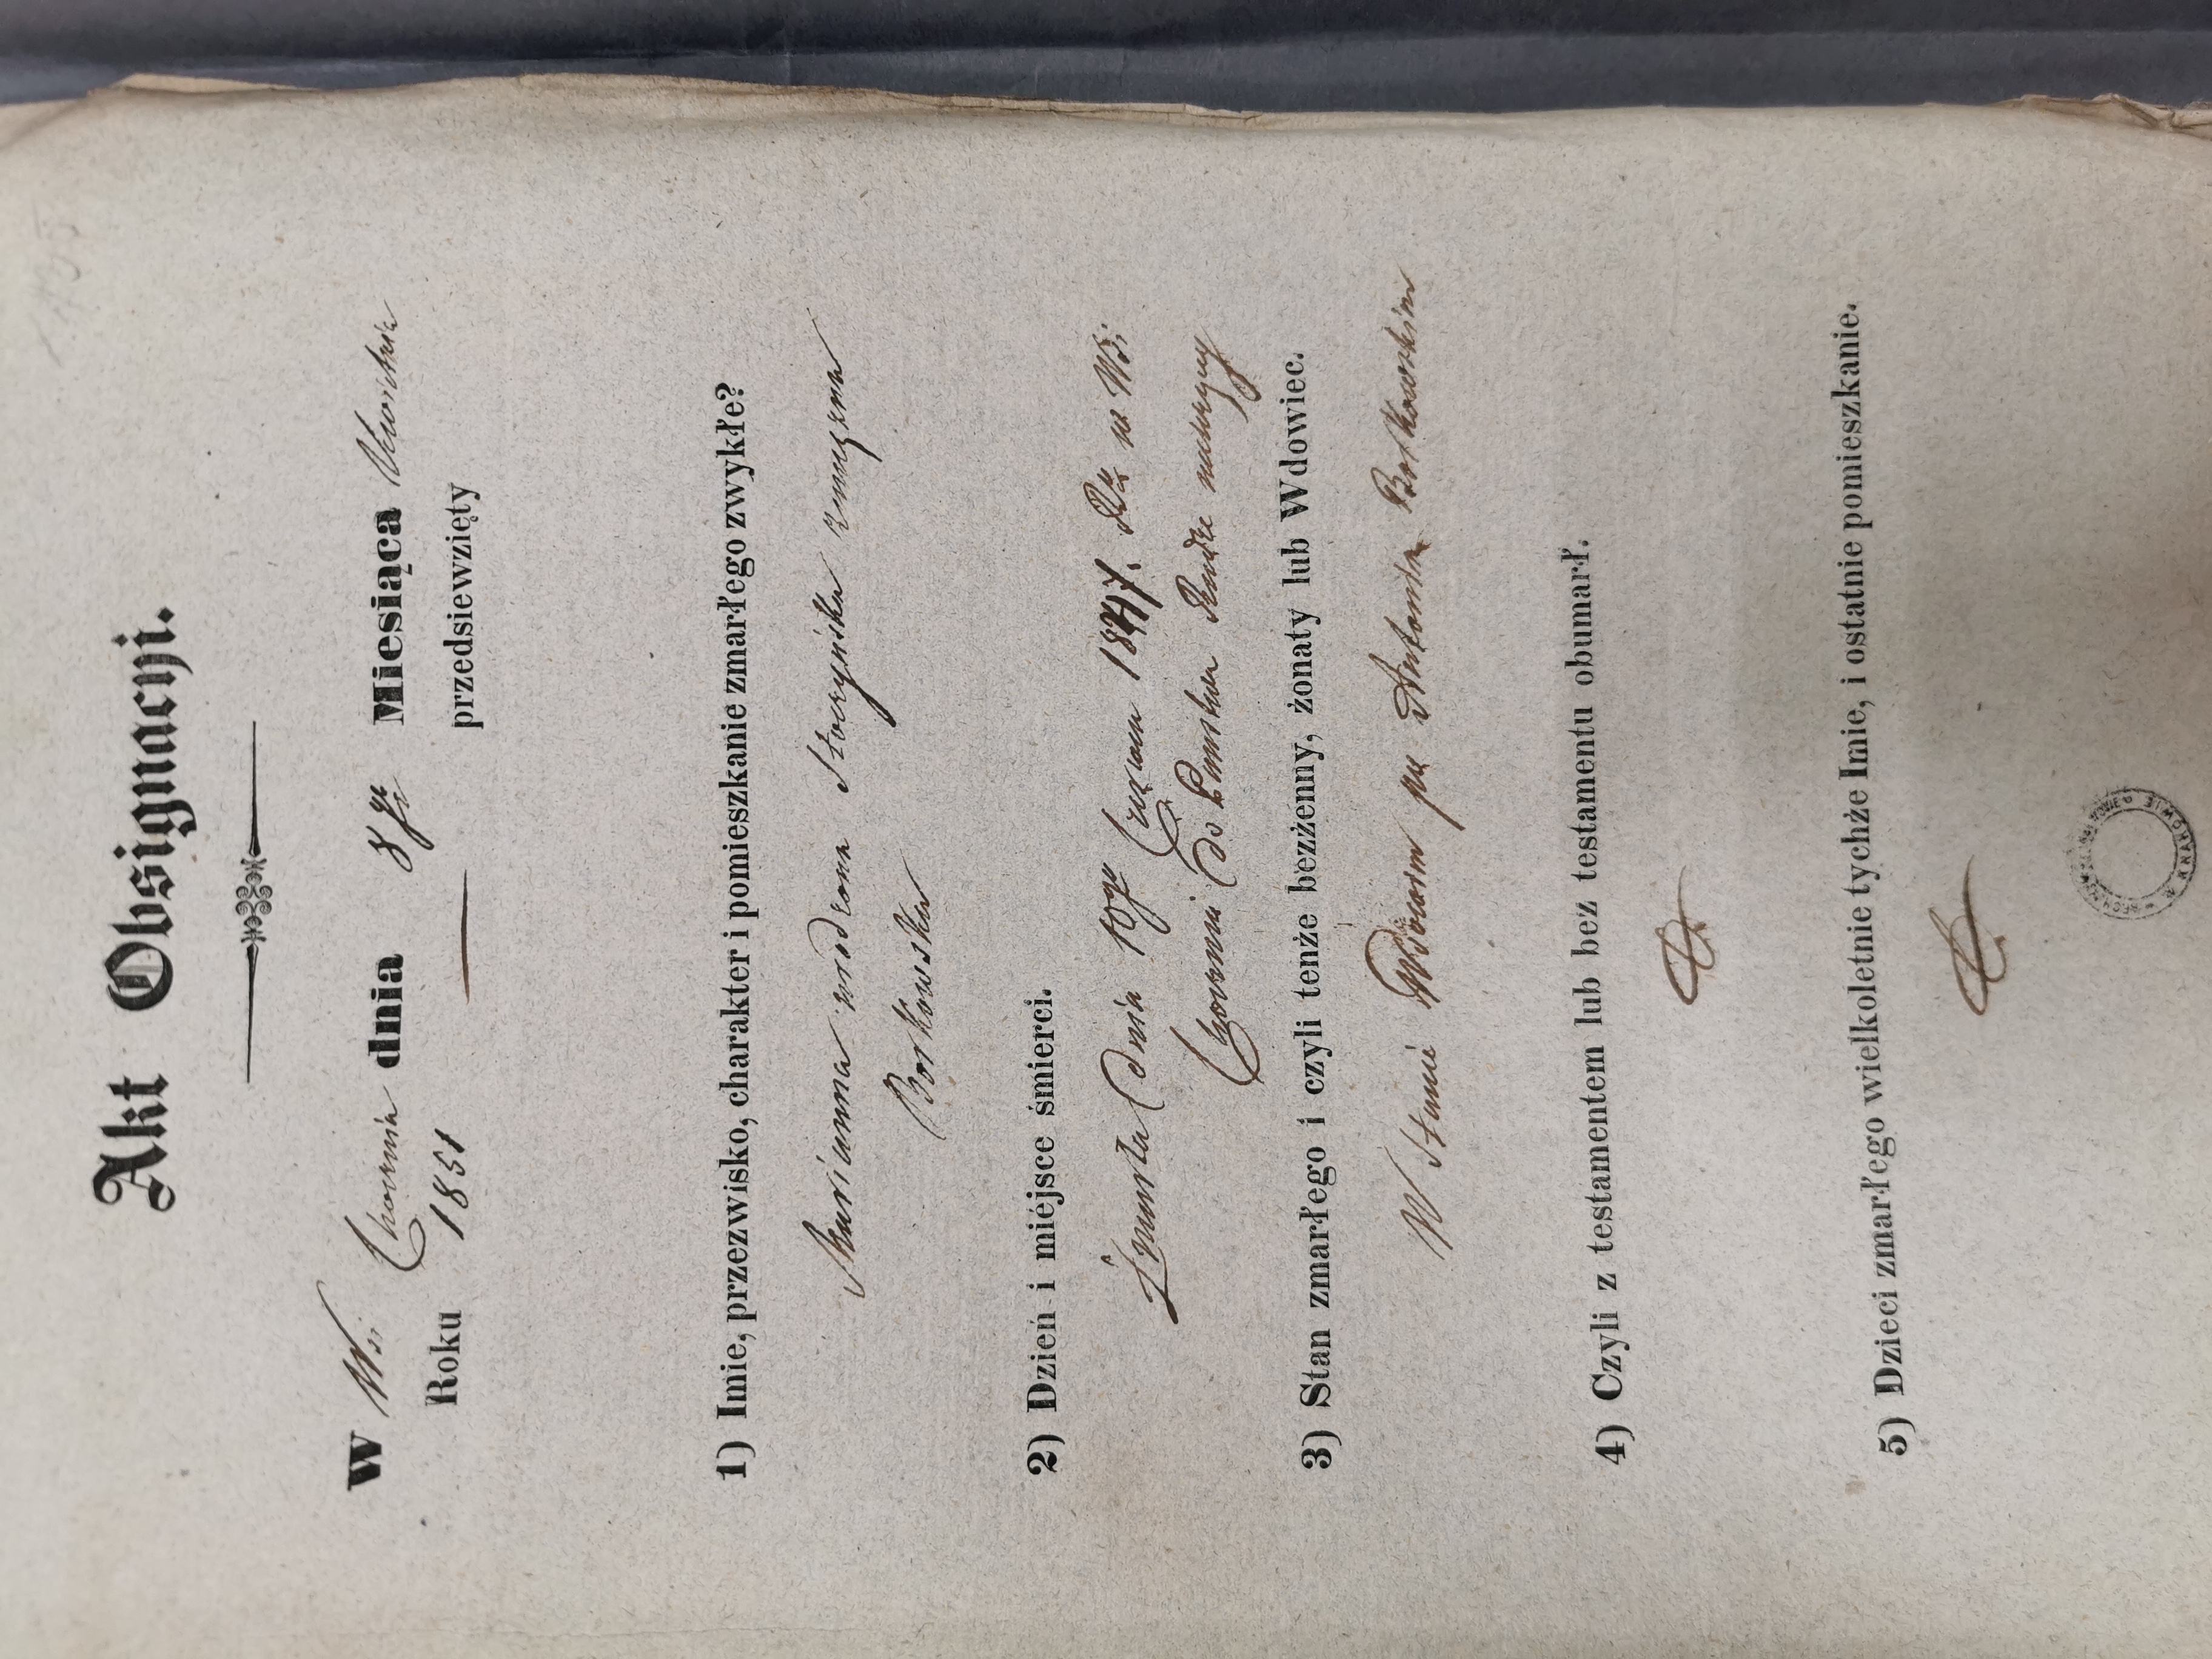 Akt Obsignacyi.
w Wsi Chorynia dnia 8go Miesiąca Kwietnia
Roku 1851 — przedsiewzięty
1) Imie, przezwisko, charakter i pomieszkanie zmarłego zwykłe?
Marianna urodzona zamężna
Borkowska
2) Dzień i miejsce śmierci.
Zmarła dnia 10go 1847. Rku w Wsi
Choryni do Państwa
3) Stan zmarłego i czyli tenże bezżenny, żonaty lub Wdowiec.
W Stanie Wdowim po Antonim Borkowskim
4) Czyli z testamentem lub bez testamentu obumarł.
5) Dzieci zmarłego wielkoletnie tychże Imie, i ostatnie pomieszkanie.